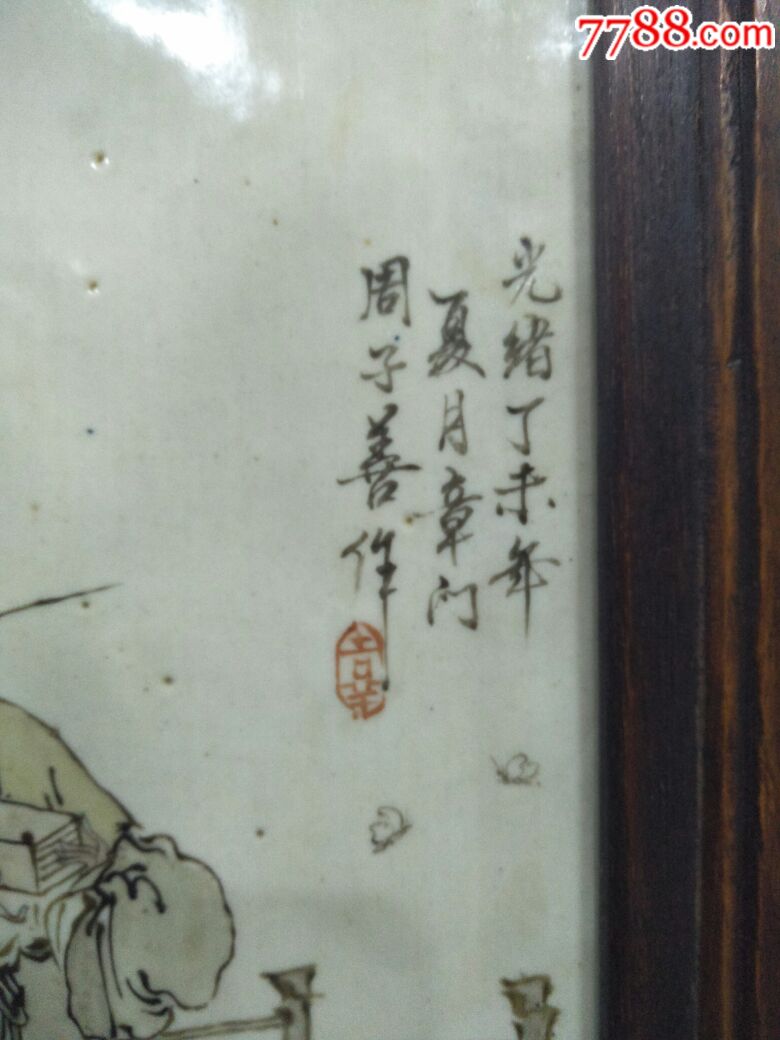 7788.com
光绪丁未年
夏月章门
周子善作